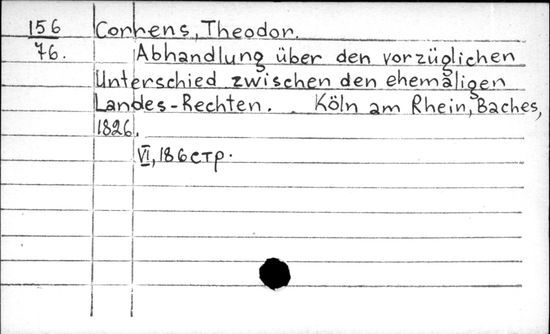 156 Correns, Theodor.
76. Abhandlung über den vorzüglichen
Unterschied zwischen den ehemäligen
Landes-Rechten. Köln am Rhein, Baches,
1826.
VI, 186 стр.